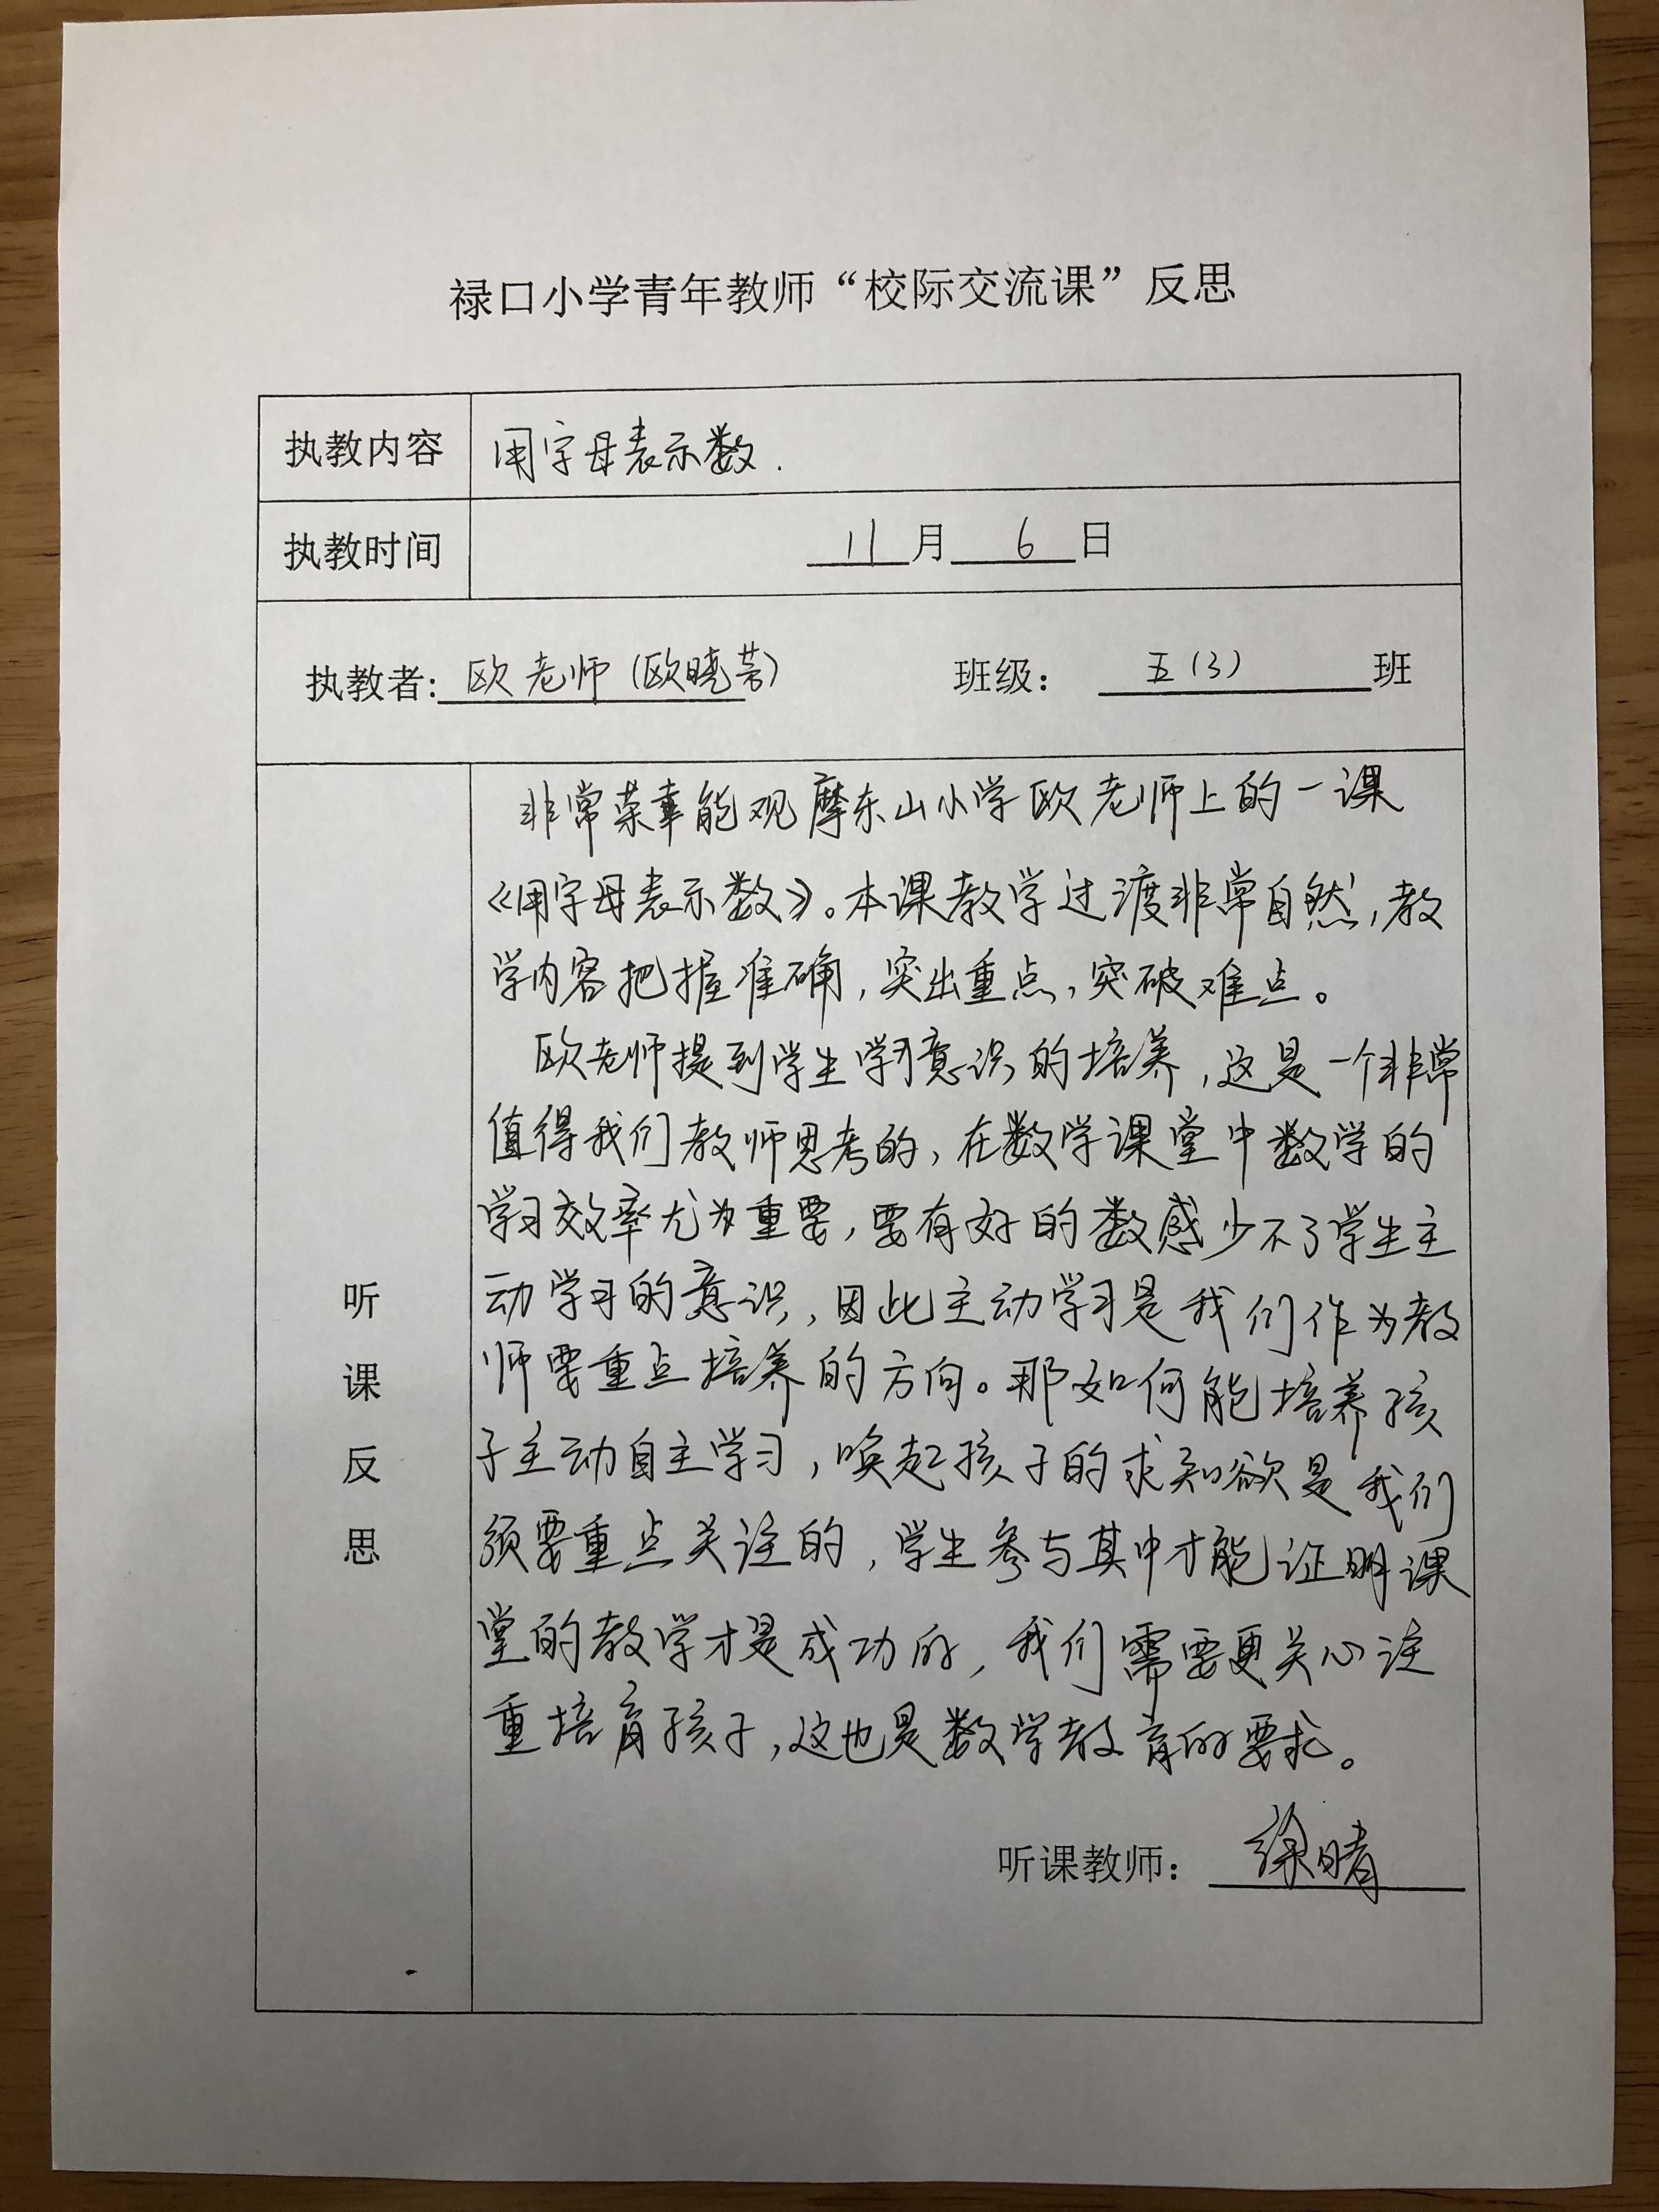 禄口小学青年教师“校际交流课”反思
执教内容 用字母表示数.
执教时间 11月 6 日
执教者:欧老师(欧晓芳) 班级: 五(3) 班
非常荣幸能观摩东山小学欧老师上的一课
《用字母表示数》。本课教学过渡非常自然,教
学内容把握准确,突出重点,突破难点。
欧老师提到学生学习意识的培养,这是一个非常
值得我们教师思考的,在数学课堂中数学的
学习效率尤为重要,要有好的数感少不了学生主
动学习的意识,因此主动学习是我们作为教
师要重点培养的方向。那如何能培养孩
子主动自主学习,唤起孩子的求知欲是我们
须要重点关注的,学生参与其中才能证明课
堂的教学才是成功的,我们需要更关心注
重培育孩子,这也是数学教育的要求。
听课反思
听课教师: 徐晴